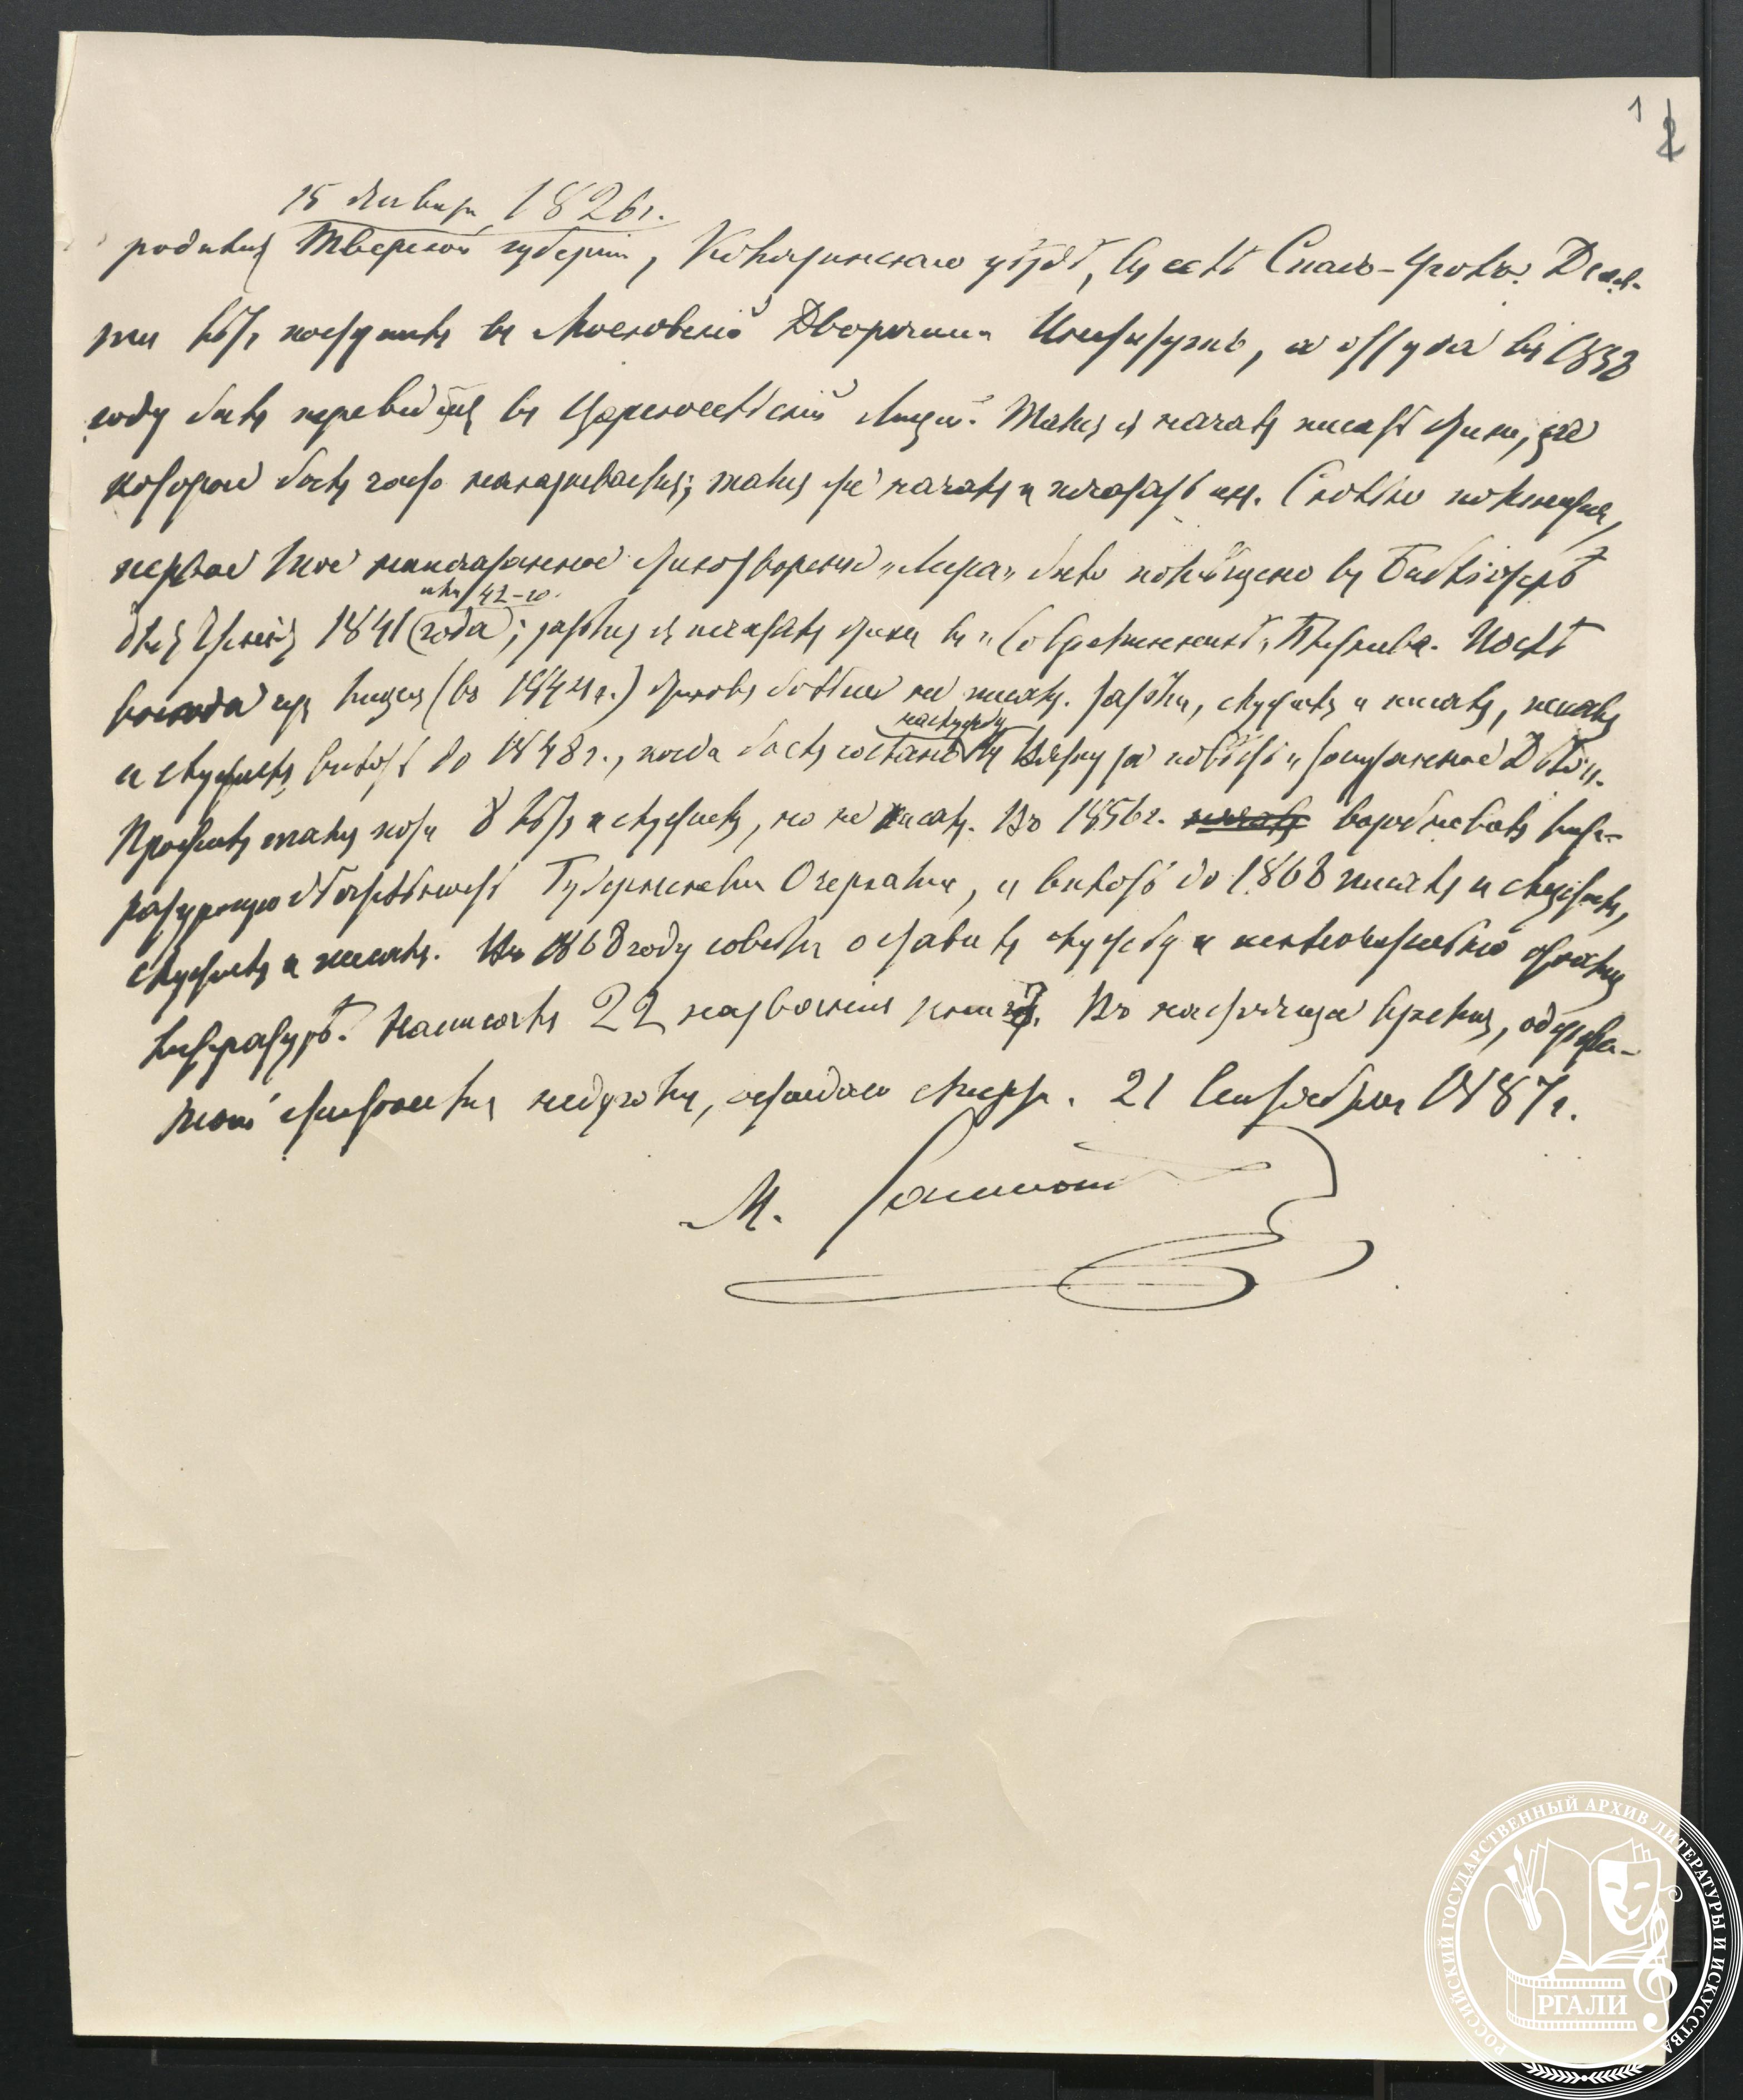 1 2
15 Января 1826 г.
родился Тверской губернии, Колязинскаго уѣзда, въ селѣ Спасъ-Уголъ. Деся-
ти лѣтъ поступилъ въ Московскій Дворянскій Институтъ, а оттуда въ 1838
году былъ переведенъ въ Царскосельскій Лицей. Тамъ я началъ писать стихи, за
которые былъ часто наказываемъ; тамъ же началъ и печатать их. Сколько помнится,
первое мое напечатанное стихотвореніе „Лира" было помѣщено въ Библіотекѣ
или 42-го
для Чтенія 1841 (года); затѣмъ я печаталъ стихи въ „Современникѣ" Плетнева. Послѣ
выхода изъ лицея (въ 1844 г.) стиховъ больше не писалъ. Затѣмъ, служилъ и писалъ, писалъ
на службу
и служилъ вплоть до 1848 г., когда былъ сосланъ въ Вятку за повѣсть „Запутанное Дѣло".
Прожилъ тамъ почти 8 лѣтъ и служилъ, но не писалъ. Въ 1856 г. началъ возобновилъ лите-
ратурную дѣятельность Губернскими Очерками, и вплоть до 1868 писалъ и служилъ,
служилъ и писалъ. Въ 1868 году совсѣмъ оставилъ службу и исключительно отдался
литературѣ. Написалъ 22 названія книгъ. Въ настоящее время, одержи-
мый жестокимъ недугомъ, ожидаю смерти. 21 Сентября 1887 г.
М. Салтыков
РОССИЙСКИЙ ГОСУДАРСТВЕННЫЙ АРХИВ ЛИТЕРАТУРЫ И ИСКУССТВА
РГАЛИ